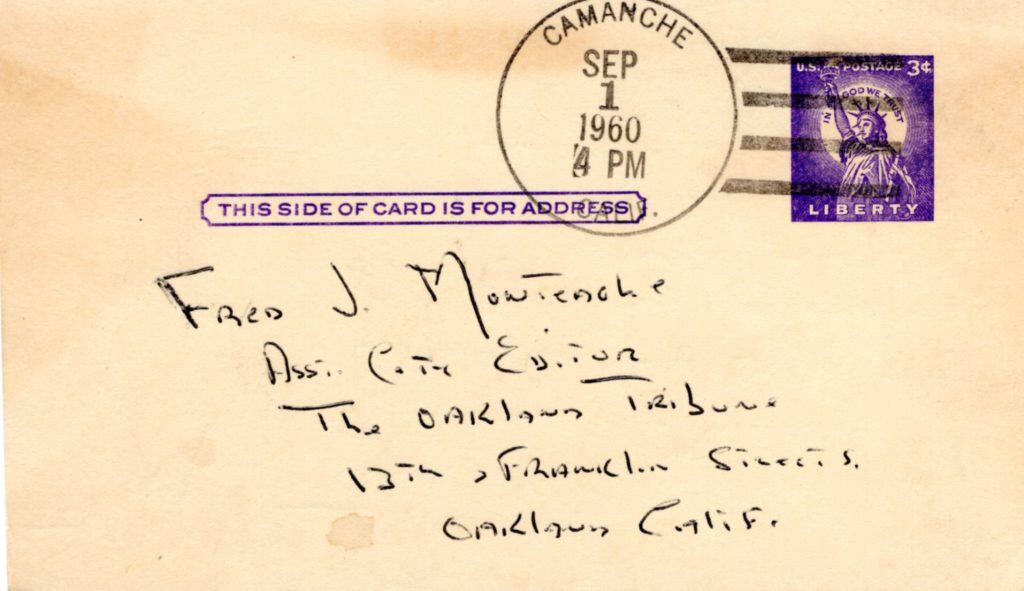 CAMANCHE
SEP
1
1960
4 PM
CALIF.
U.S. POSTAGE 3¢
IN GOD WE TRUST
LIBERTY
THIS SIDE OF CARD IS FOR ADDRESS
Fred J. Monteagle
Asst. City Editor
The Oakland Tribune
13th & Franklin Streets.
Oakland Calif.